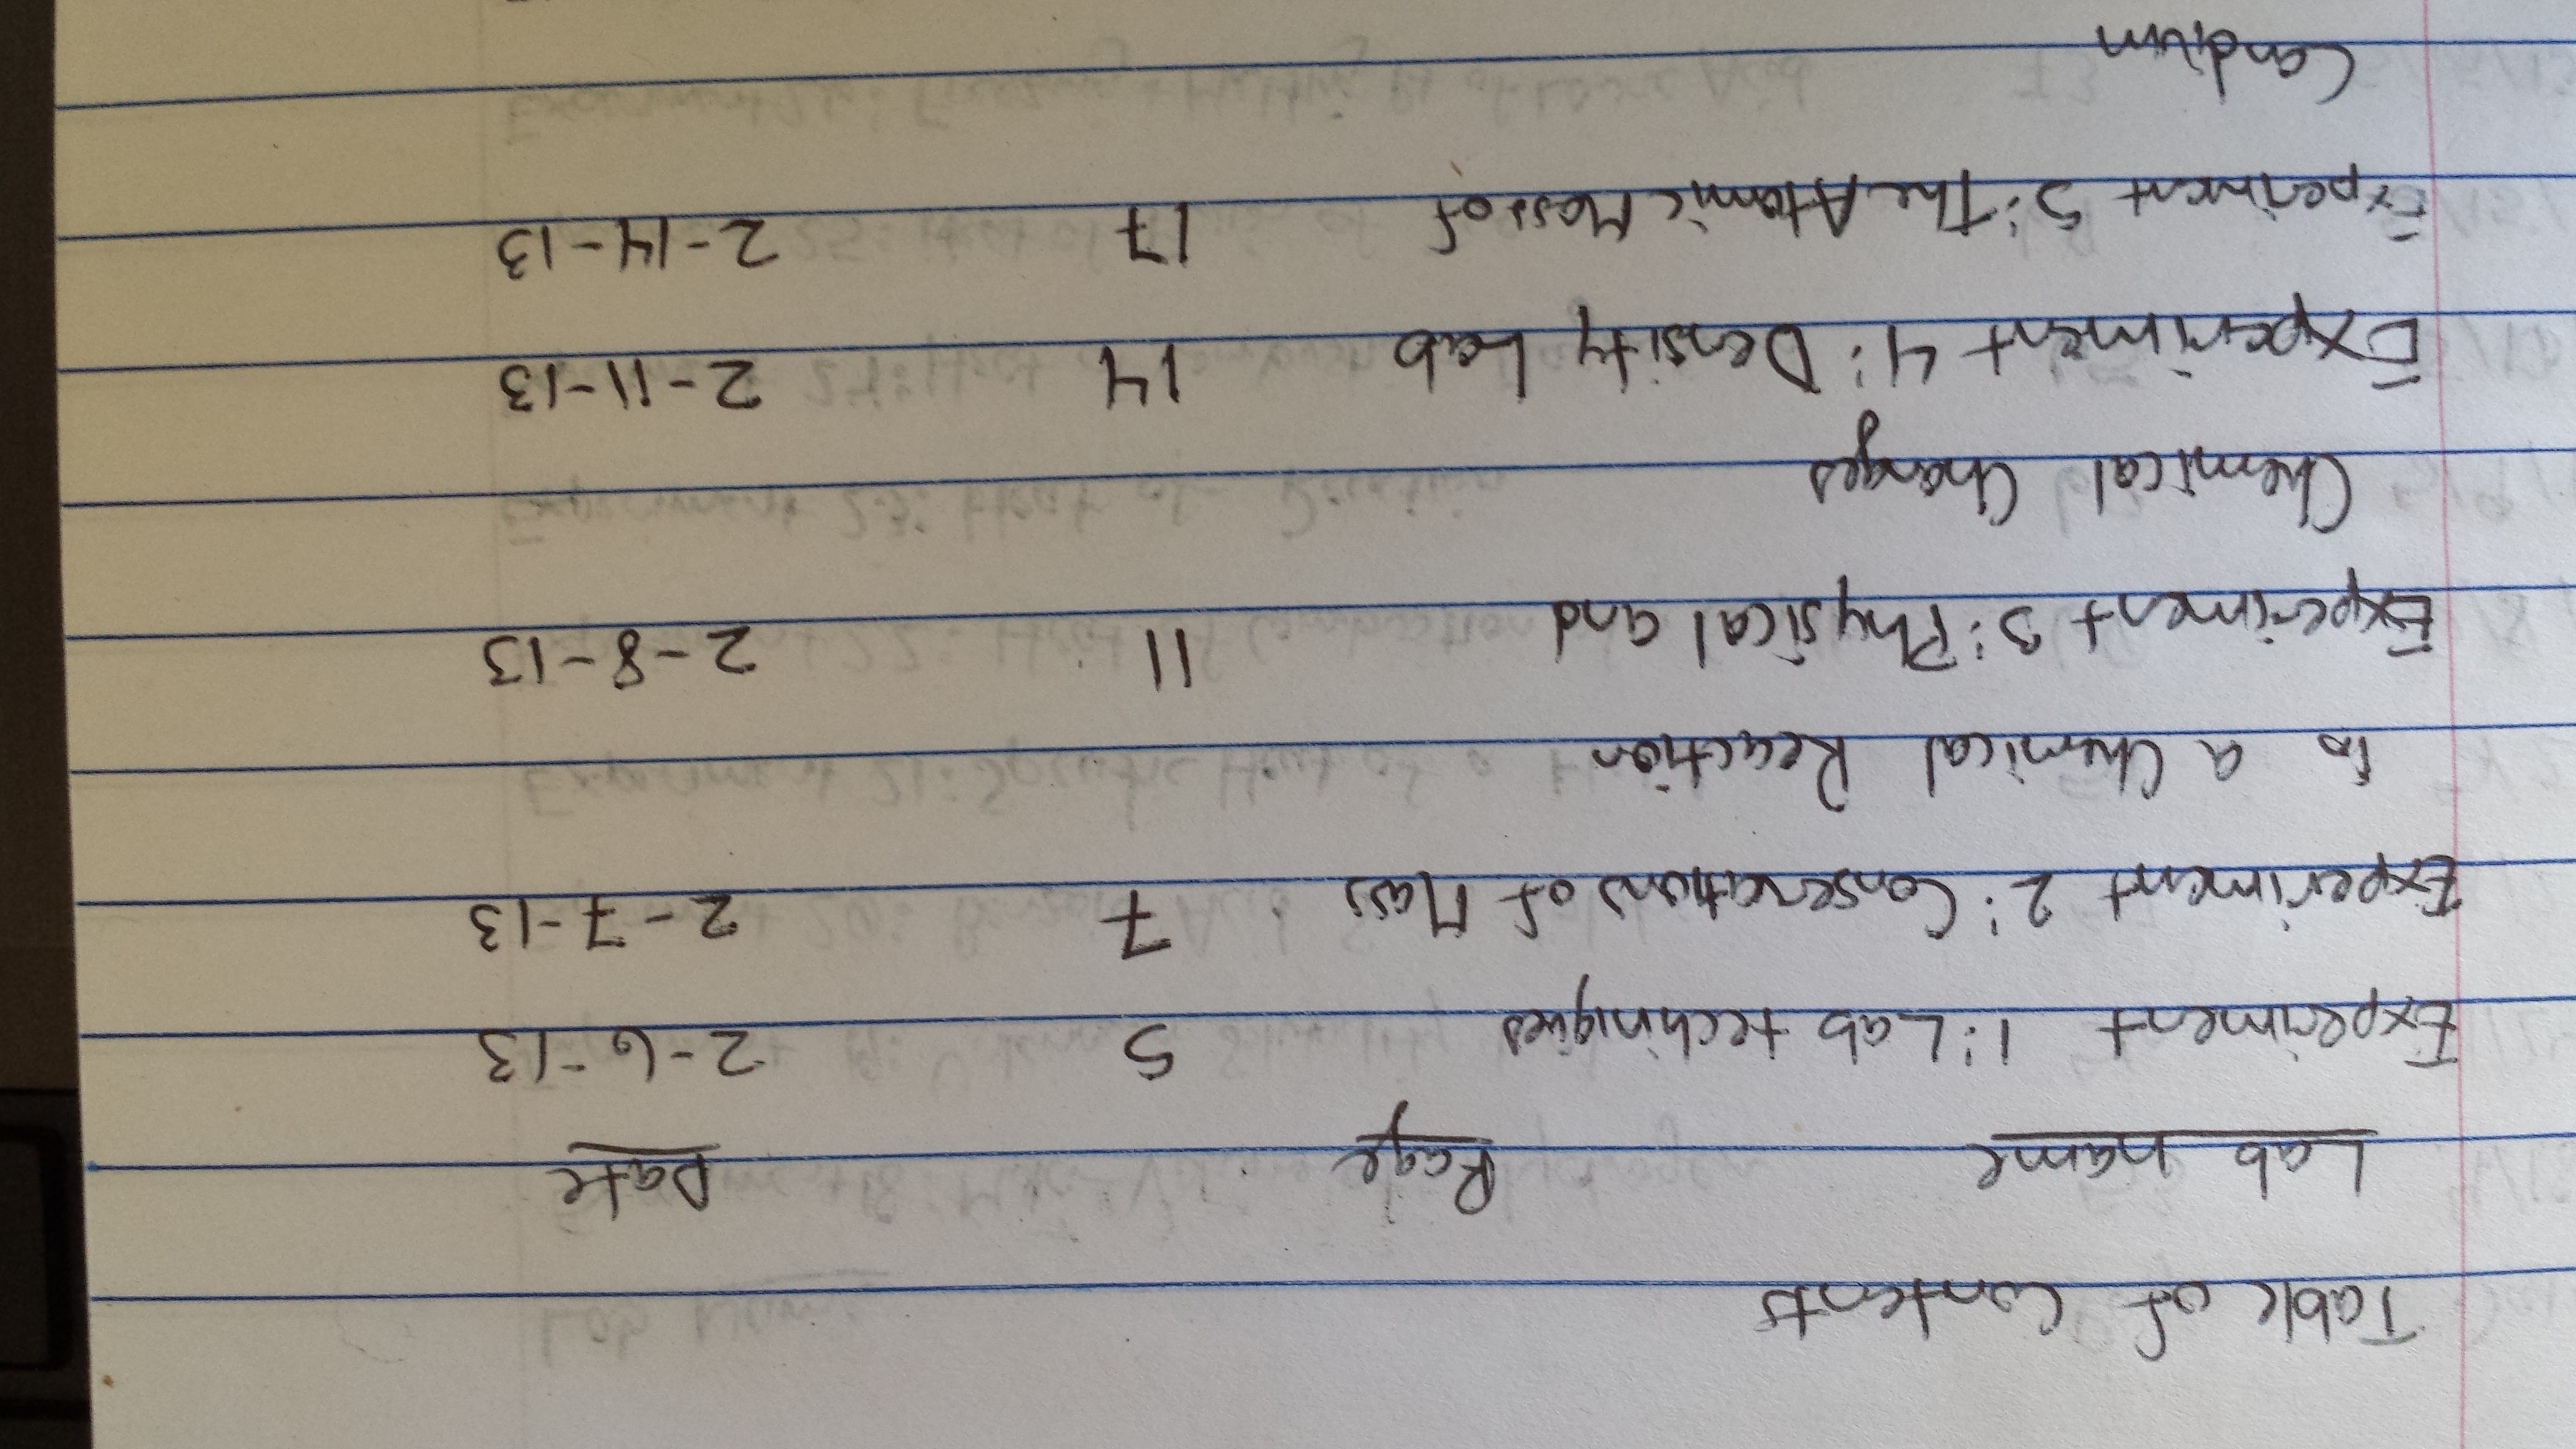 Table of Contents
Lab name Page Date
Experiment 1: Lab techiniques 5 2-6-13
Experiment 2: Conservations of Mass 7 2-7-13
to a Chemical Reaction
Experiment 3: Physical and 11 2-8-13
Chemical Changes
Experiment 4: Density Lab 14 2-11-13
Experiment 5: The Atomic Mass of 17 2-14-13
Candium